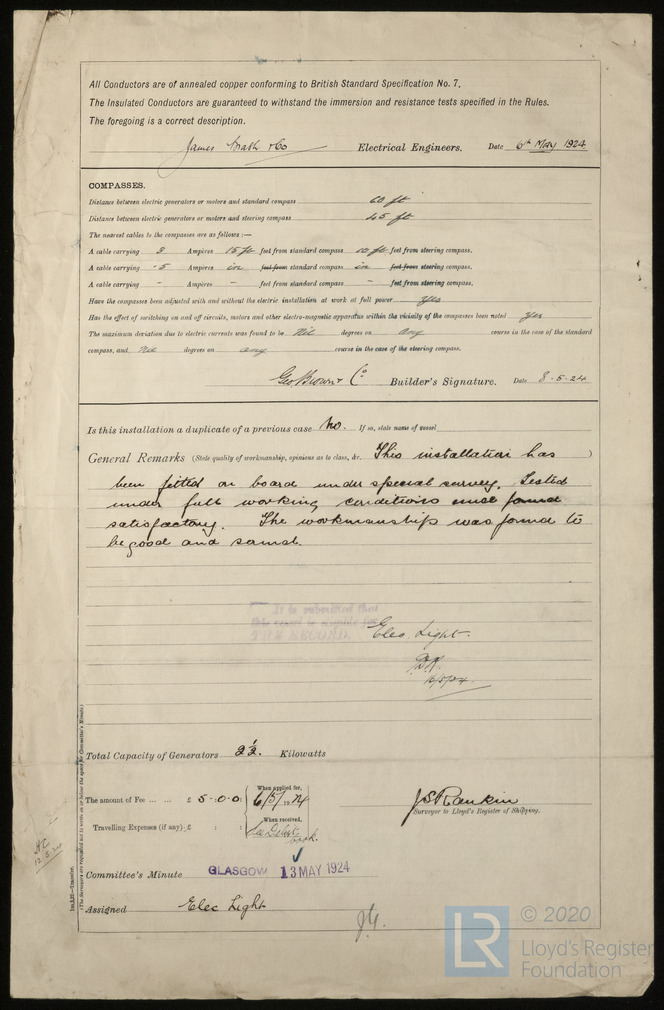 All Conductors are of annealed copper conforming to British Standard Specification No. 7.
The Insulated Conductors are guaranteed to withstand the immersion and resistance tests specified in the Rules.
The foregoing is a correct description.
James & Co Electrical Engineers. Date 6th May 1924
COMPASSES.
Distance between electric generators or motors and standard compass 60 ft
Distance between electric generators or motors and steering compass 45 ft
The nearest cables to the compasses are as follows :—
A cable carrying 3 Ampères 15 ft feet from standard compass 10 ft feet from steering compass.
A cable carrying ·5 Ampères in feet from standard compass in feet from steering compass.
A cable carrying - Ampères - feet from standard compass - feet from steering compass.
Have the compasses been adjusted with and without the electric installation at work at full power yes
Has the effect of switching on and off circuits, motors and other electro-magnetic apparatus within the vicinity of the compasses been noted yes
The maximum deviation due to electric currents was found to be Nil degrees on any course in the case of the standard
compass, and Nil degrees on any course in the case of the steering compass.
Geo Brown & Co Builder's Signature. Date 8-5-24
Is this installation a duplicate of a previous case No. If so, state name of vessel
General Remarks (State quality of workmanship, opinions as to class, &c. This installation has )
been fitted on board under special survey. Tested
under full working conditions and found
satisfactory. The workmanship was found to
be good and sound.
It is submitted that
this vessel is eligible for
THE RECORD. Elec. Light.
16/5/24
Total Capacity of Generators 2½. Kilowatts
The amount of Fee ... ... £ 5-0-0 When applied for, 6/5/1924
J S Rankin
Surveyor to Lloyd's Register of Shipping.
Travelling Expenses (if any) £ : : When received,
book.
Committee's Minute GLASGOW 13 MAY 1924
Assigned Elec Light
(The Surveyors are requested not to write on or below the space for Committee's Minute.)
12.5.24
LR © 2020
Lloyd's Register
Foundation